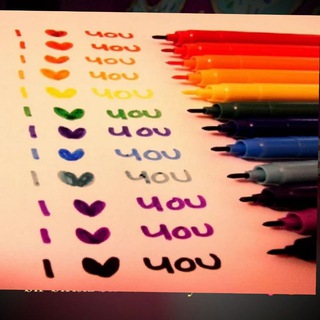 I ♥ YOU
I ♥ YOU
I ♥ YOU
I ♥ YOU
I ♥ YOU
I ♥ YOU
I ♥ YOU
I ♥ YOU
I ♥ YOU
I ♥ YOU
I ♥ YOU
I ♥ YOU